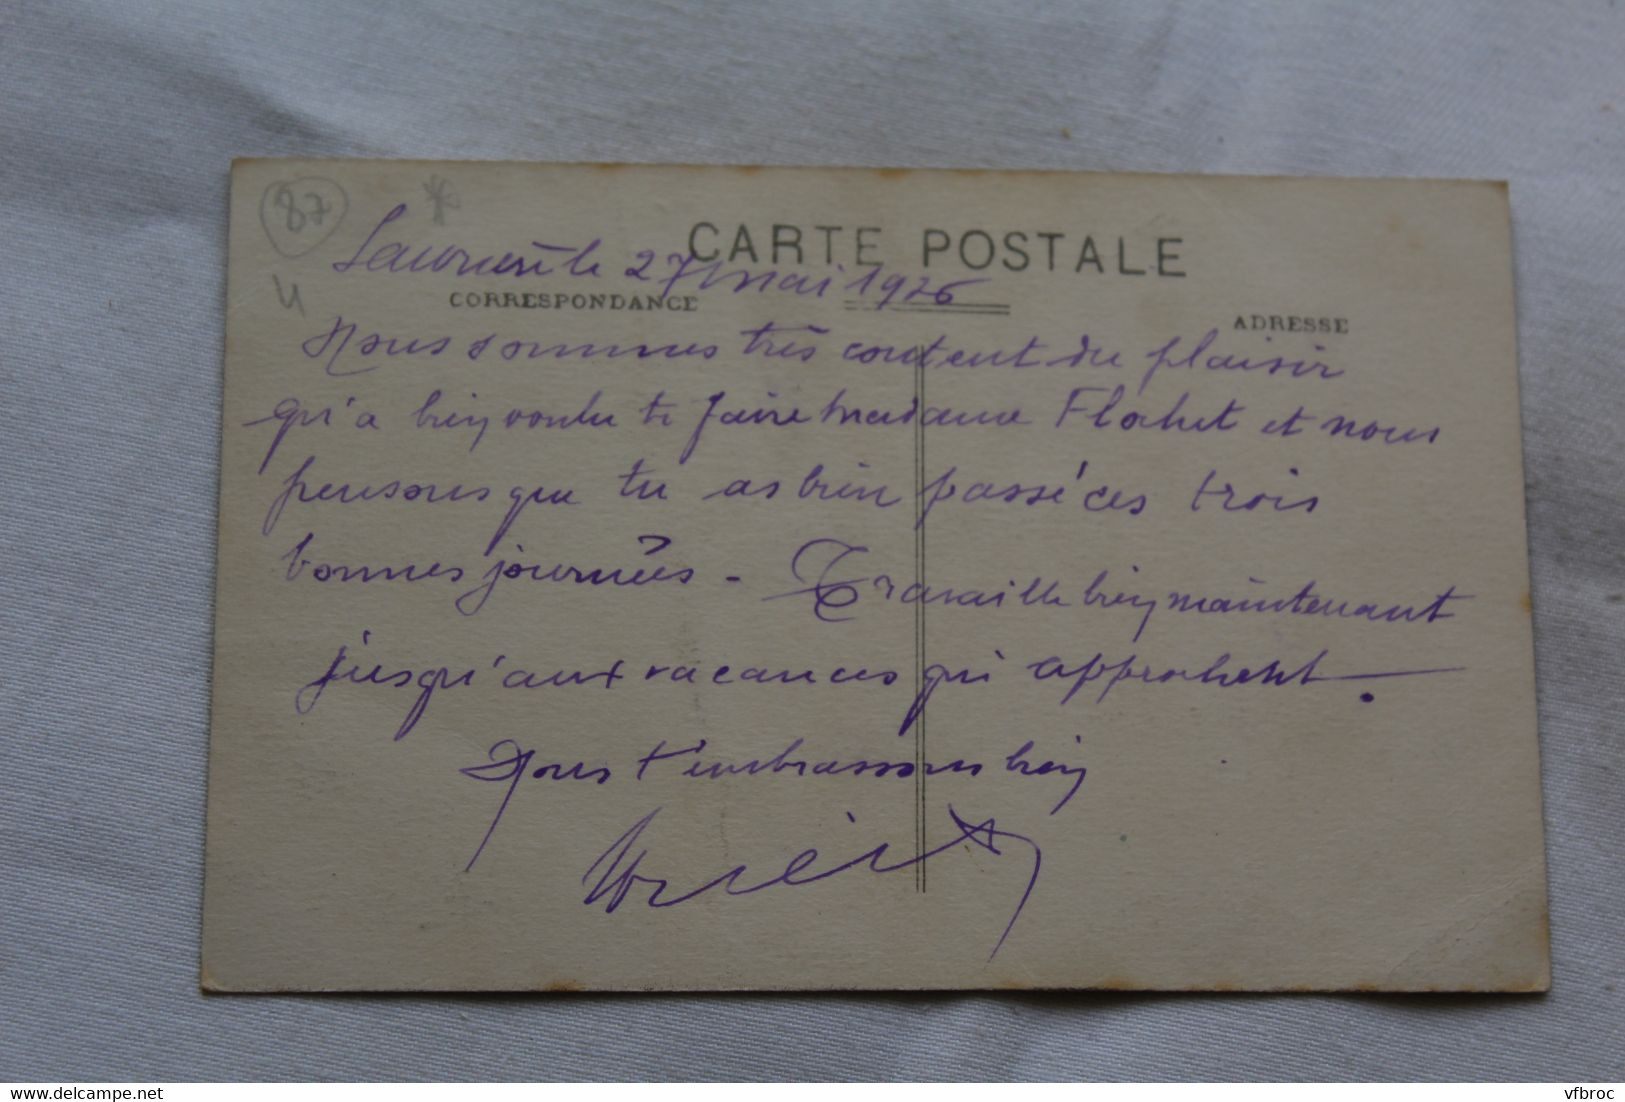 87
CARTE POSTALE
le 27 mai 1926
CORRESPONDANCE
ADRESSE
Nous sommes très content du plaisir
qu'a bien voulu te faire Madame Flochet et nous
pensons que tu as bien passé ces trois
bonnes journées - Travaille bien maintenant
jusqu'aux vacances qui approchent.
Nous t'embrassons bien
delcampe.net
vfbroc